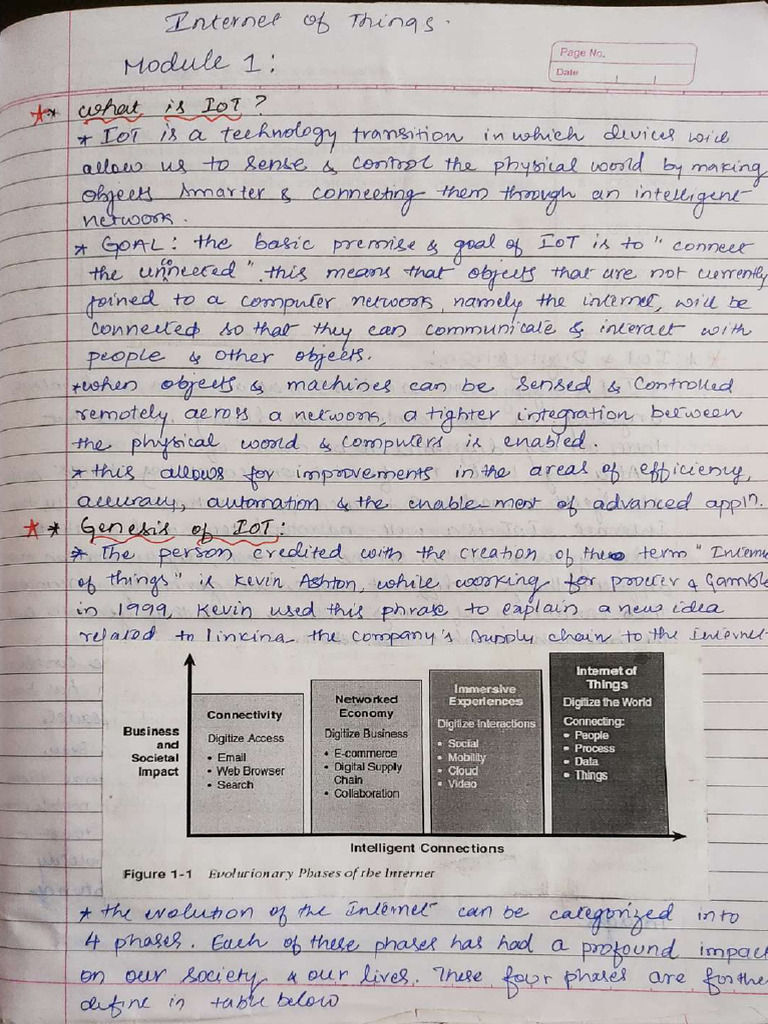 Internet of Things.
Module 1:
Page No.
Date
** What is IoT?
* IoT is a technology transition in which devices will
allow us to sense & control the physical world by making
objects smarter & connecting them through an intelligent
network.
* GOAL: the basic premise & goal of IoT is to "connect
the unconnected". this means that objects that are not currently
joined to a computer network, namely the internet, will be
connected so that they can communicate & interact with
people & other objects.
* when objects & machines can be sensed & controlled
remotely across a network, a tighter integration between
the physical world & computers is enabled.
* this allows for improvements in the areas of efficiency,
accuracy, automation & the enable-ment of advanced appln.
** Genesis of IoT:
* The person credited with the creation of the term "Interne
of things" is Kevin Ashton, while working for procter & Gamble
in 1999, Kevin used this phrase to explain a new idea
related to linking the company's supply chain to the internet
Business
and
Societal
Impact
Connectivity
Digitize Access
• Email
• Web Browser
• Search
Networked
Economy
Digitize Business
• E-commerce
• Digital Supply
Chain
• Collaboration
Immersive
Experiences
Digitize Interactions
• Social
• Mobility
• Cloud
• Video
Internet of
Things
Digitize the World
Connecting:
• People
• Process
• Data
• Things
Intelligent Connections
Figure 1-1 Evolutionary Phases of the Internet
* the evolution of the Internet can be categorized into
4 phases. Each of these phases has had a profound impact
on our society & our lives. These four phases are further
define in table below